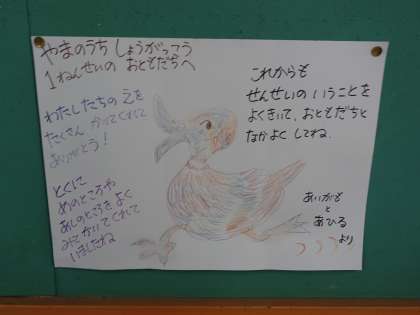 やまのうち しょうがっこう
1ねんせいの おともだちへ
わたしたちの えを
たくさん かいてくれて
ありがとう！
とくに
めのところや
あしのところをよく
みて かいてくれて
いましたね
これからも
せんせいの いうことを
よくきいて、おともだちと
なかよく してね.
あいがも
と
あひる
より